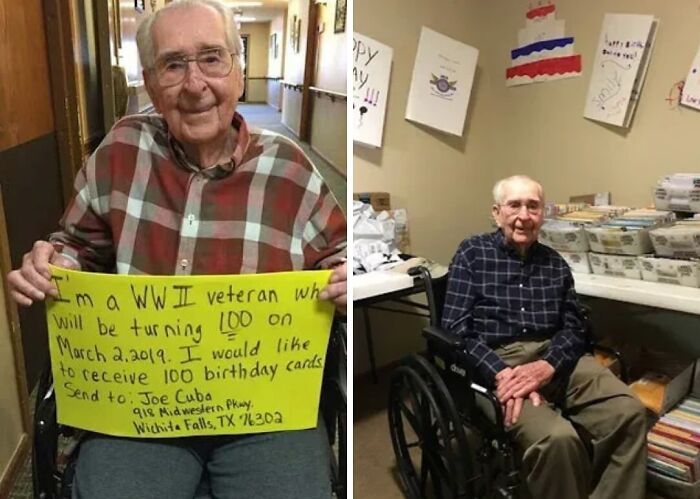 I'm a WWII veteran wh
will be turning 100 on
March 2, 2019. I would like
to receive 100 birthday cards.
Send to: Joe Cuba
918 Midwestern Pkwy.
Wichita Falls, TX 76302
PPY
Y
!!!
happy Birth
you!
drive